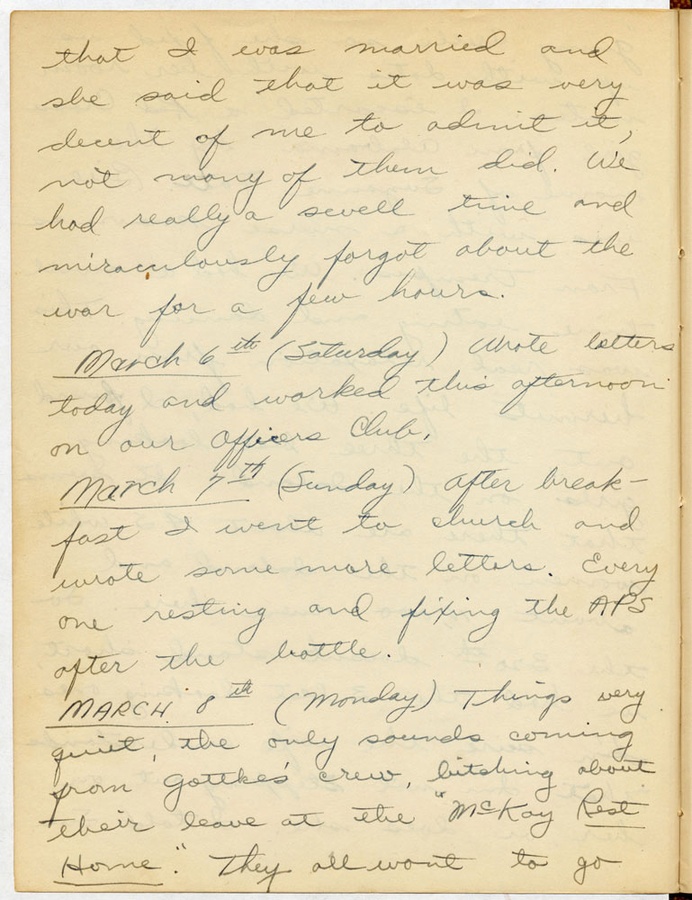 that I was married and
she said that it was very
decent of me to admit it,
not many of them did. We
had really a swell time and
miraculously forgot about the
war for a few hours.
March 6th (Saturday) Wrote letters
today and worked this afternoon
on our Officers Club.
March 7th (Sunday) After break-
fast I went to church and
wrote some more letters. Every
one resting and fixing the APS
after the battle.
MARCH 8th (Monday) Things very
quiet, the only sounds coming
from Gottke's crew, bitching about
their leave at the "McKay Rest
Home". They all want to go